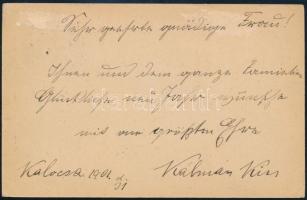 Sehr geehrte gnädige Frau!
Ihnen und dem ganze Familien
Glückliche neu Jahr wünsche
mit an größten Ehre
Kalocsa 1901 31
Kálmán Kiss